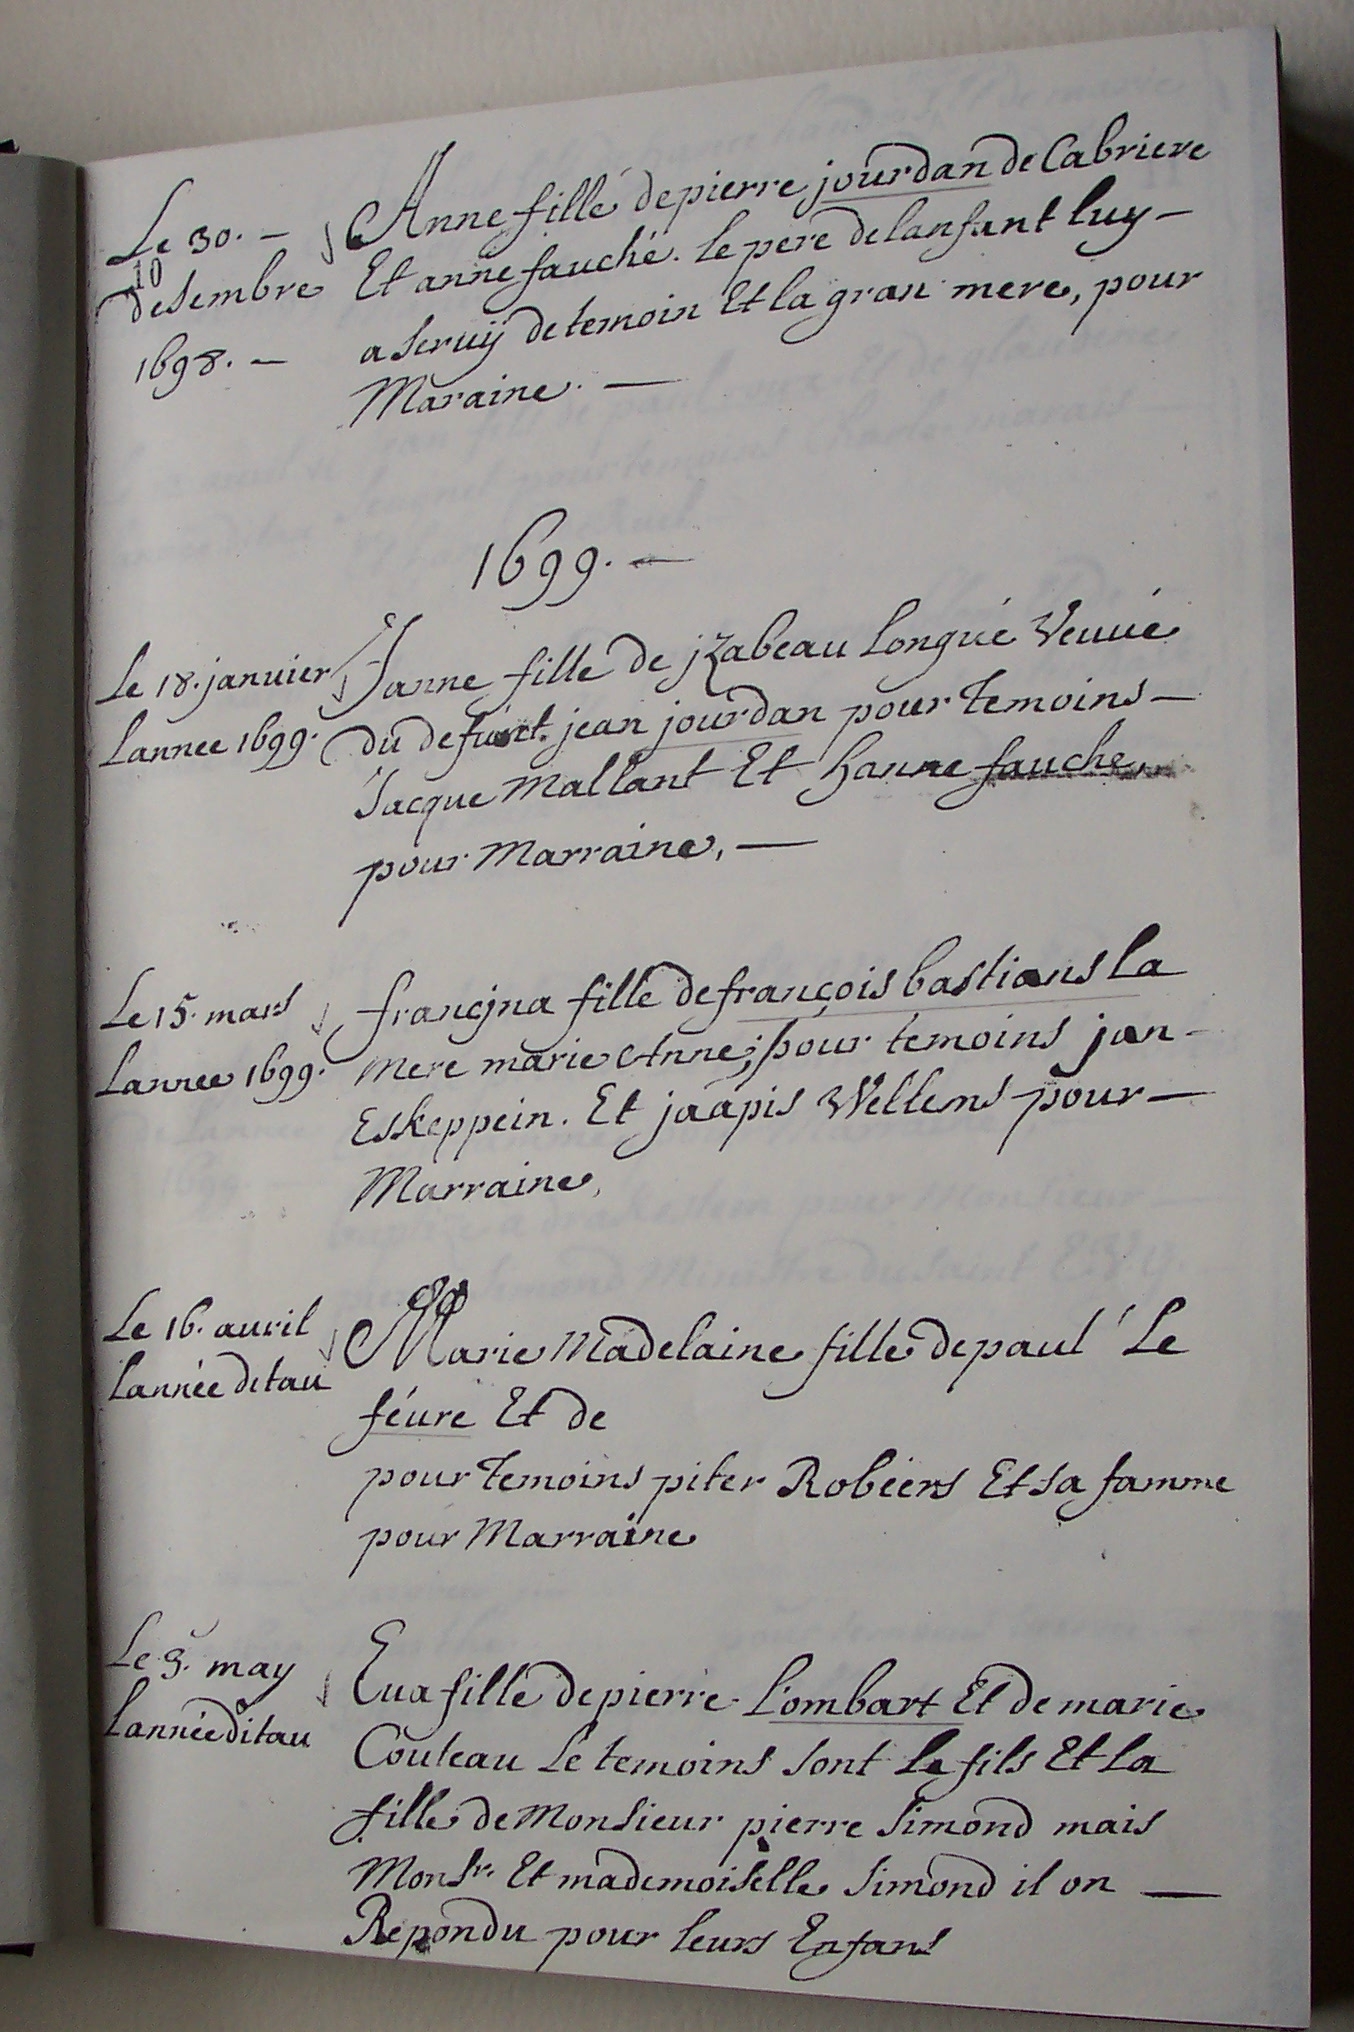 Le 30. —
10
desembre
1698. —
Anne fille de pierre jourdan de Cabriere
Et anne fauché. le pere de lanfant luy —
a seruij de temoin Et la gran mere, pour
Maraine. —
1699. —
Le 18. januier
Lannee 1699.
Janne fille de jzabeau Longué Veuue
du defunt. jean jourdan pour temoins —
Jacque Mallant Et hanne fauche
pour Marraine, —
Le 15. mars
Lannee 1699.
francjna fille de françois bastians La
Mere marie Anne; pour temoins jan —
Eskeppein. Et jaapis Wellems pour —
Marraine,
Le 16. auril
Lannée ditau
Marie Madelaine fille de paul Le
féure Et de
pour temoins piter Robeers Et sa famme
pour Marraine
Le may
Lannée ditau
Eua fille de pierre Lombart Et de marie
Couteau Le temoins sont Le fils Et La
fille de Monsieur pierre Simond mais
Monsr. Et mademoiselle Simond il on —
Repondu pour leurs Enfans